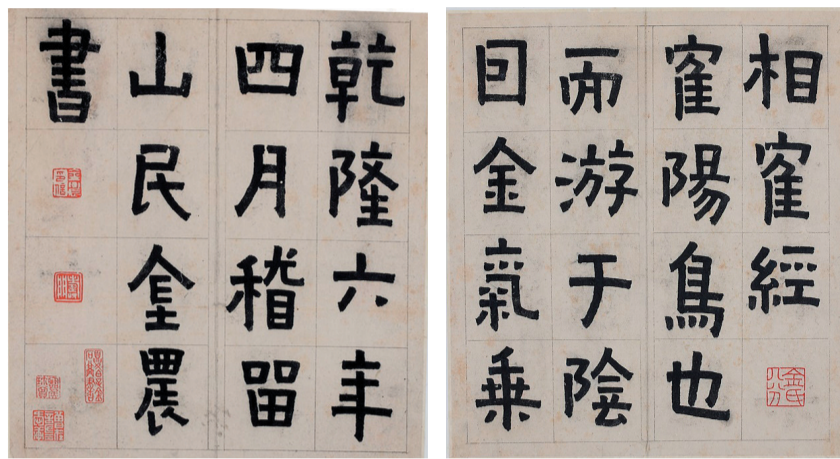 相寉經
金氏八分
寉陽鳥也
而游于陰
囙金氣乗
乾隆六年
四月稽留
山民金農
書